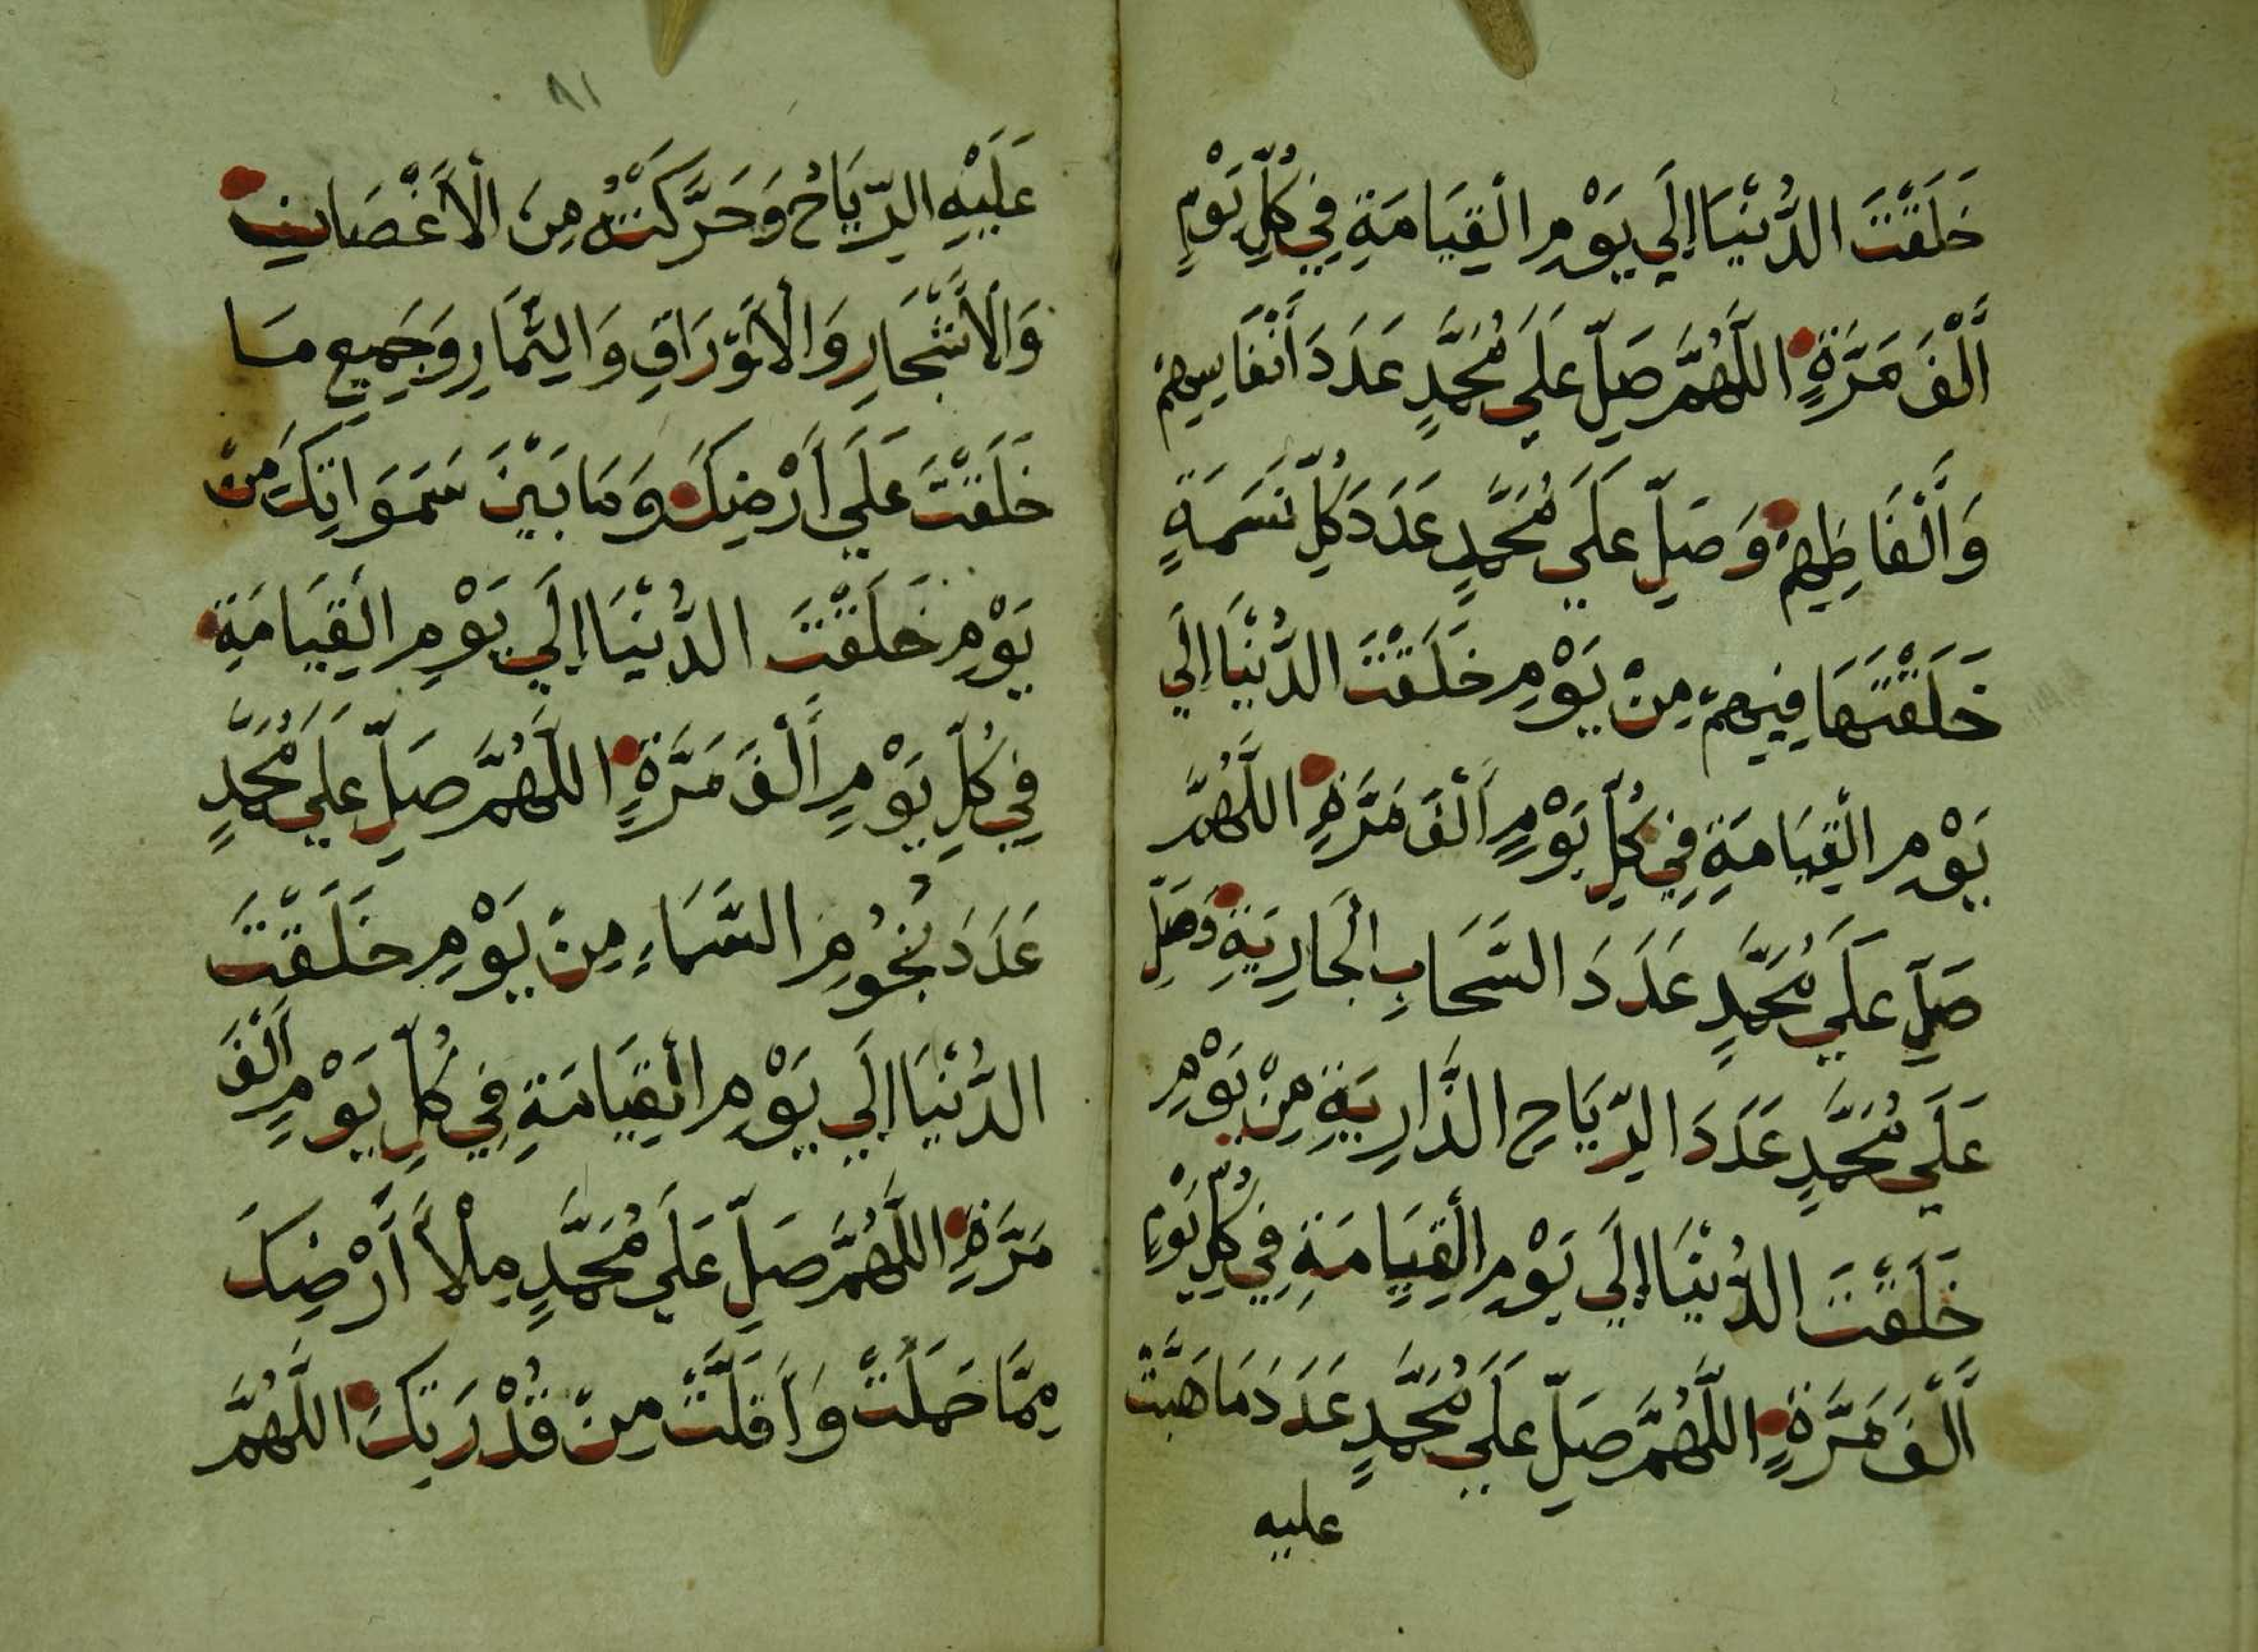 خَلَقْتَ الدُّنْيَا إِلَي يَوْمِ الْقِيَامَةِ فِي كُلِّ يَوْمٍ
أَلْفَ مَرَّةٍ اللَّهُمَّ صَلِّ عَلَي مُحَمَّدٍ عَدَدَ أَنْفَاسِهِمْ
وَأَلْفَاظِهِمْ وَصَلِّ عَلَي مُحَمَّدٍ عَدَدَ كُلِّ نَسَمَةٍ
خَلَقْتَهَا فِيهِمْ مِنْ يَوْمِ خَلَقْتَ الدُّنْيَا إِلَي
يَوْمِ الْقِيَامَةِ فِي كُلِّ يَوْمٍ أَلْفَ مَرَّةٍ اللَّهُمَّ
صَلِّ عَلَي مُحَمَّدٍ عَدَدَ السَّحَابِ الْجَارِيَةِ وَصَلِّ
عَلَي مُحَمَّدٍ عَدَدَ الرِّيَاحِ الذَّارِيَةِ مِنْ يَوْمِ
خَلَقْتَ الدُّنْيَا إِلَي يَوْمِ الْقِيَامَةِ فِي كُلِّ يَوْمٍ
أَلْفَ مَرَّةٍ اللَّهُمَّ صَلِّ عَلَي مُحَمَّدٍ عَدَدَ مَا هَبَّتْ
عليه
٨١
عَلَيْهِ الرِّيَاحُ وَحَرَّكَتْهُ مِنَ الْأَغْصَانِ
وَالْأَشْجَارِ وَالْأَوْرَاقِ وَالثِّمَارِ وَجَمِيعِ مَا
خَلَقْتَ عَلَي أَرْضِكَ وَمَا بَيْنَ سَمَوَاتِكَ مِنْ
يَوْمِ خَلَقْتَ الدُّنْيَا إِلَي يَوْمِ الْقِيَامَةِ
فِي كُلِّ يَوْمٍ أَلْفَ مَرَّةٍ اللَّهُمَّ صَلِّ عَلَي مُحَمَّدٍ
عَدَدَ نُجُومِ السَّمَاءِ مِنْ يَوْمِ خَلَقْتَ
الدُّنْيَا إِلَي يَوْمِ الْقِيَامَةِ فِي كُلِّ يَوْمٍ أَلْفَ
مَرَّةٍ اللَّهُمَّ صَلِّ عَلَي مُحَمَّدٍ مِلْأَ أَرْضِكَ
مِمَّا حَمَلَتْ وَأَقَلَّتْ مِنْ قُدْرَتِكَ اللَّهُمَّ